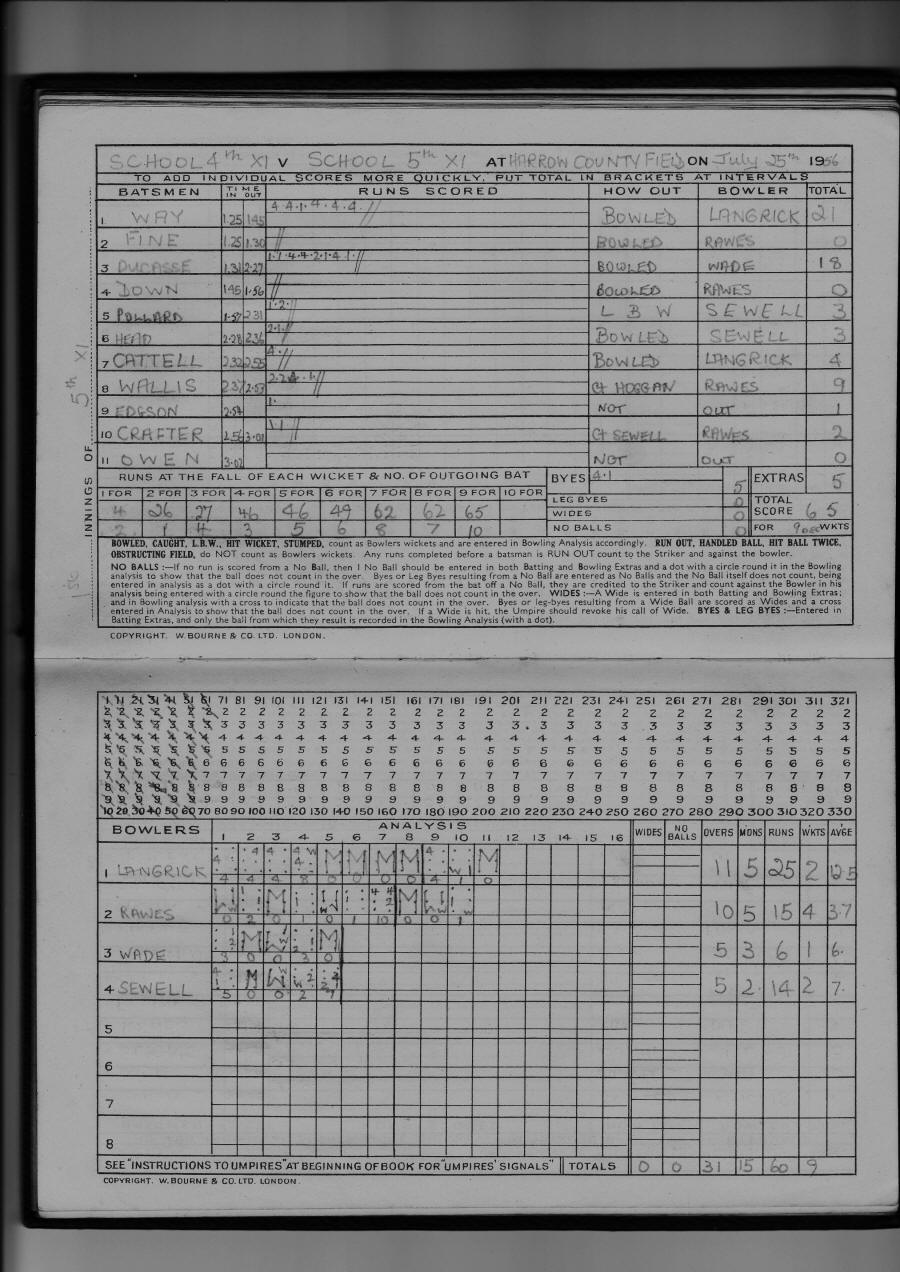 SCHOOL 4th XI V SCHOOL 5th XI AT HARROW COUNTY FIELD ON July 25th 1956
TO ADD INDIVIDUAL SCORES MORE QUICKLY, PUT TOTAL IN BRACKETS AT INTERVALS
BATSMEN TIME IN OUT RUNS SCORED HOW OUT BOWLER TOTAL
1 WAY 1.25 1.45 4.4.1.4.4.4. BOWLED LANGRICK 21
2 FINE 1.25 1.30 BOWLED RAWES 0
3 DUCASSE 1.31 2.27 1.1.4.4.2.1.4.1. BOWLED WADE 18
4 DOWN 1.45 1.56 BOWLED RAWES 0
5 POLLARD 1.57 2.31 1.2. L B W SEWELL 3
6 HEAD 2.28 2.36 2.1. BOWLED SEWELL 3
7 CATTELL 2.32 2.55 4. BOWLED LANGRICK 4
8 WALLIS 2.37 2.53 Ct HOGGAN RAWES 9
9 EDGSON 2.54 1. NOT OUT 1
10 CRAFTER 2.56 3.01 1.1 Ct SEWELL RAWES 2
11 OWEN 3.02 NOT OUT 0
INNINGS OF 5th XI
1st
RUNS AT THE FALL OF EACH WICKET & NO. OF OUTGOING BAT BYES 4.1 5 EXTRAS 5
1 FOR 2 FOR 3 FOR 4 FOR 5 FOR 6 FOR 7 FOR 8 FOR 9 FOR 10 FOR LEG BYES 0
4 26 27 46 46 49 62 62 65 WIDES 0 TOTAL SCORE 65
2 1 4 3 5 6 8 7 10 NO BALLS 0 FOR 9 DEC WKTS
BOWLED, CAUGHT, L.B.W., HIT WICKET, STUMPED, count as Bowlers wickets and are entered in Bowling Analysis accordingly. RUN OUT, HANDLED BALL, HIT BALL TWICE,
OBSTRUCTING FIELD, do NOT count as Bowlers wickets. Any runs completed before a batsman is RUN OUT count to the Striker and against the bowler.
NO BALLS :—If no run is scored from a No Ball, then 1 No Ball should be entered in both Batting and Bowling Extras and a dot with a circle round it in the Bowling
analysis to show that the ball does not count in the over. Byes or Leg Byes resulting from a No Ball are entered as No Balls and the No Ball itself does not count, being
entered in analysis as a dot with a circle round it. If runs are scored from the bat off a No Ball, they are credited to the Striker and count against the Bowler in his
analysis being entered with a circle round the figure to show that the ball does not count in the over. WIDES :—A Wide is entered in both Batting and Bowling Extras;
and in Bowling analysis with a cross to indicate that the ball does not count in the over. Byes or leg-byes resulting from a Wide Ball are scored as Wides and a cross
entered in Analysis to show that the ball does not count in the over. If a Wide is hit, the Umpire should revoke his call of Wide. BYES & LEG BYES :—Entered in
Batting Extras, and only the ball from which they result is recorded in the Bowling Analysis (with a dot).
COPYRIGHT. W. BOURNE & CO. LTD. LONDON.
1 11 21 31 41 51 61 71 81 91 101 111 121 131 141 151 161 171 181 191 201 211 221 231 241 251 261 271 281 291 301 311 321
2 2 2 2 2 2 2 2 2 2 2 2 2 2 2 2 2 2 2 2 2 2 2 2 2 2 2 2 2 2 2 2 2
3 3 3 3 3 3 3 3 3 3 3 3 3 3 3 3 3 3 3 3 3 3 3 3 3 3 3 3 3 3 3 3 3
4 4 4 4 4 4 4 4 4 4 4 4 4 4 4 4 4 4 4 4 4 4 4 4 4 4 4 4 4 4 4 4 4
5 5 5 5 5 5 5 5 5 5 5 5 5 5 5 5 5 5 5 5 5 5 5 5 5 5 5 5 5 5 5 5 5
6 6 6 6 6 6 6 6 6 6 6 6 6 6 6 6 6 6 6 6 6 6 6 6 6 6 6 6 6 6 6 6 6
7 7 7 7 7 7 7 7 7 7 7 7 7 7 7 7 7 7 7 7 7 7 7 7 7 7 7 7 7 7 7 7 7
8 8 8 8 8 8 8 8 8 8 8 8 8 8 8 8 8 8 8 8 8 8 8 8 8 8 8 8 8 8 8 8 8
9 9 9 9 9 9 9 9 9 9 9 9 9 9 9 9 9 9 9 9 9 9 9 9 9 9 9 9 9 9 9 9 9
10 20 30 40 50 60 70 80 90 100 110 120 130 140 150 160 170 180 190 200 210 220 230 240 250 260 270 280 290 300 310 320 330
BOWLERS ANALYSIS WIDES NO BALLS OVERS MDNS RUNS WKTS AVGE
1 2 3 4 5 6 7 8 9 10 11 12 13 14 15 16
1 LANGRICK 4 4 4 8 0 0 0 0 4 1 0 11 5 25 2 12.5
2 RAWES 0 2 0 1 0 1 10 0 0 1 10 5 15 4 3.7
3 WADE 3 0 0 3 0 5 3 6 1 6.
4 SEWELL 5 0 0 2 7 5 2. 14 2 7.
5
6
7
8
SEE "INSTRUCTIONS TO UMPIRES" AT BEGINNING OF BOOK FOR "UMPIRES' SIGNALS" TOTALS 0 0 31 15 60 9
COPYRIGHT. W. BOURNE & CO. LTD. LONDON.